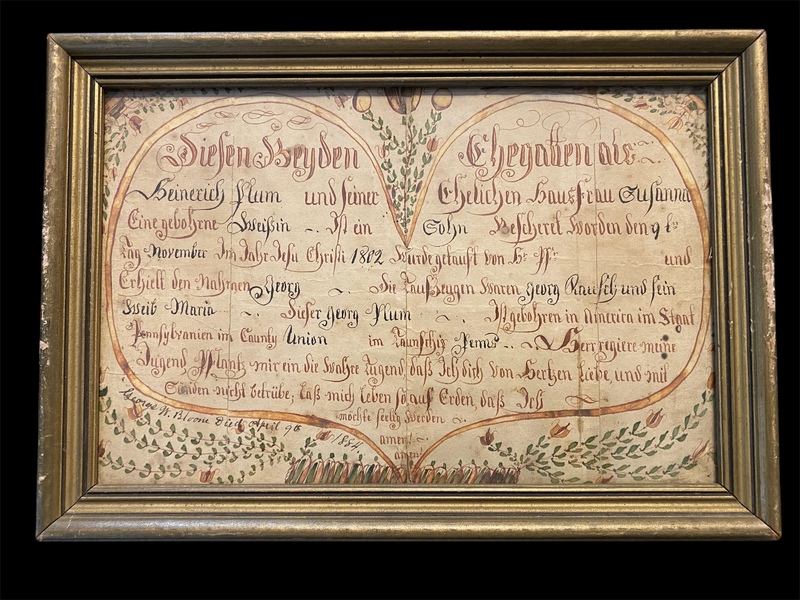 Diesen Beyden Ehegatten als
Heinerich Plum und seiner Ehelichen Hausfrau Susanna
Eine gebohrne Weißin Ist ein Sohn Bescheret worden den 9 ts
Tag November Im Jahr Jesu Christi 1802 Wurde getauft von Hr Pfr und
Erhielt den Nahmen Georg Die Taufzeugen waren Georg Rausch und sein
Weib Maria Dieser Georg Plum Ist gebohren in America im Staat
Pennsylvanien im County Union im Taunschip Penns Herr regiere meine
Jugend Pflantz mir ein die wahre Tugend, daß Ich dich von Hertzen liebe, und mit
Sünden nicht betrübe; laß mich leben so auf Erden daß Ich
möchte seelig werden
amen!
amen!
George W. Bloom Died April 9th
1884.